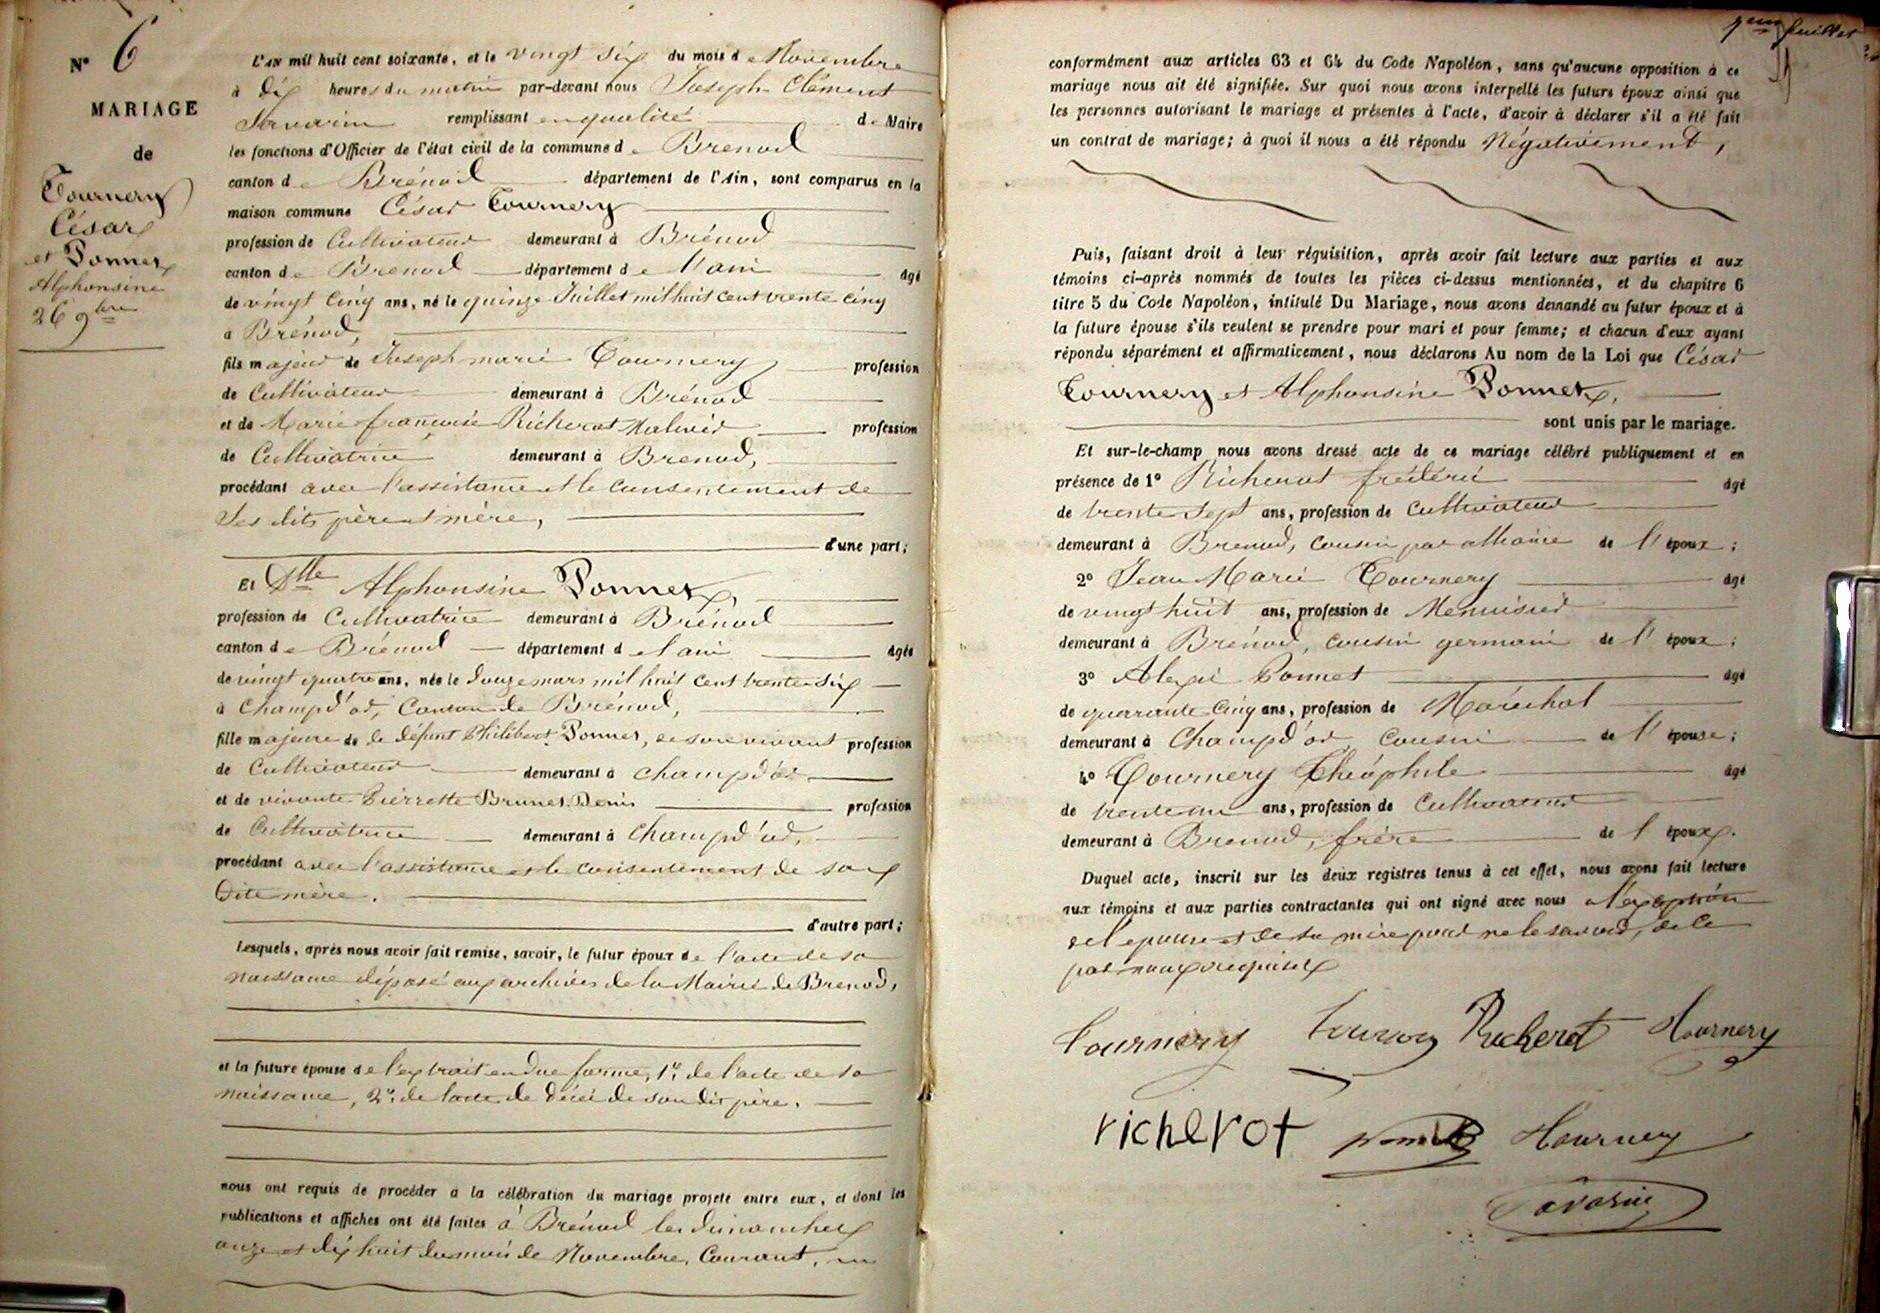 N° 6
MARIAGE
de
Tournery
César
et Ponnet
Alphonsine
26 9bre
L'AN mil huit cent soixante, et le vingt six du mois de Novembre
à dix heures du matin par-devant nous Joseph Clément
Savarin remplissant en qualité de Maire
les fonctions d'Officier de l'état civil de la commune de Brénod
canton de Brénod département de l'Ain, sont comparus en la
maison commune César Tournery
profession de Cultivateur demeurant à Brénod
canton de Brenod département de l'ain âgé
de vingt cinq ans, né le quinze Juillet mil huit cent trente cinq
à Brénod,
fils majeur de Joseph marie Tournery profession
de Cultivateur demeurant à Brénod
et de Marie françoise Richerot profession
de Cultivatrice demeurant à Brenod,
procédant avec l'assistance et le consentement de
ses dits père et mère,
d'une part;
Et Dlle Alphonsine Ponnet,
profession de Cultivatrice demeurant à Brénod
canton de Brénod département de l'ain âgée
de vingt quatre ans, née le douze mars mil huit cent trente six
à Champd'or, Canton de Brénod,
fille majeure de le défunt Philibert Ponnet, de son vivant profession
de Cultivateur demeurant à champd'or
et de vivante Pierrette Brunet Denis profession
de Cultivatrice demeurant à Champd'or,
procédant avec l'assistance et le consentement de sa
dite mère.
d'autre part;
Lesquels, après nous avoir fait remise, savoir, le futur époux de l'acte de sa
naissance déposé aux archives de la Mairie de Brenod,
et la future épouse de l'extrait en due forme, 1° de l'acte de sa
naissance, 2° de l'acte de décès de son dit père.
nous ont requis de procéder à la célébration du mariage projeté entre eux, et dont les
publications et affiches ont été faites à Brénod les dimanches
onze et dix huit du mois de Novembre, Courant,
feuillet
conformément aux articles 63 et 64 du Code Napoléon, sans qu'aucune opposition à ce
mariage nous ait été signifiée. Sur quoi nous avons interpellé les futurs époux ainsi que
les personnes autorisant le mariage et présentes à l'acte, d'avoir à déclarer s'il a été fait
un contrat de mariage; à quoi il nous a été répondu Négativement,
Puis, faisant droit à leur réquisition, après avoir fait lecture aux parties et aux
témoins ci-après nommés de toutes les pièces ci-dessus mentionnées, et du chapitre 6
titre 5 du Code Napoléon, intitulé Du Mariage, nous avons demandé au futur époux et à
la future épouse s'ils veulent se prendre pour mari et pour femme; et chacun d'eux ayant
répondu séparément et affirmativement, nous déclarons Au nom de la Loi que César
Tournery et Alphonsine Ponnet,
sont unis par le mariage.
Et sur-le-champ nous avons dressé acte de ce mariage célébré publiquement et en
présence de 1° Richerot frédéric âgé
de trente sept ans, profession de Cultivateur
demeurant à Brenod, cousin par alliance de l'époux;
2° Jean Marie Tournery âgé
de vingt huit ans, profession de Menuisier
demeurant à Brénod, cousin germain de l'époux;
3° Alexis Ponnet âgé
de quarante cinq ans, profession de Maréchal
demeurant à Champd'or cousin de l'épouse;
4° Tournery Théophile âgé
de trente un ans, profession de Cultivateur
demeurant à Brenod, frère de l'époux.
Duquel acte, inscrit sur les deux registres tenus à cet effet, nous avons fait lecture
aux témoins et aux parties contractantes qui ont signé avec nous à l'exception
de l'épouse et de sa mère pour ne le savoir, de ce
par nous requises
Tournery Tournery Richerot Tournery
richerot ponnet Tournery
Savarin